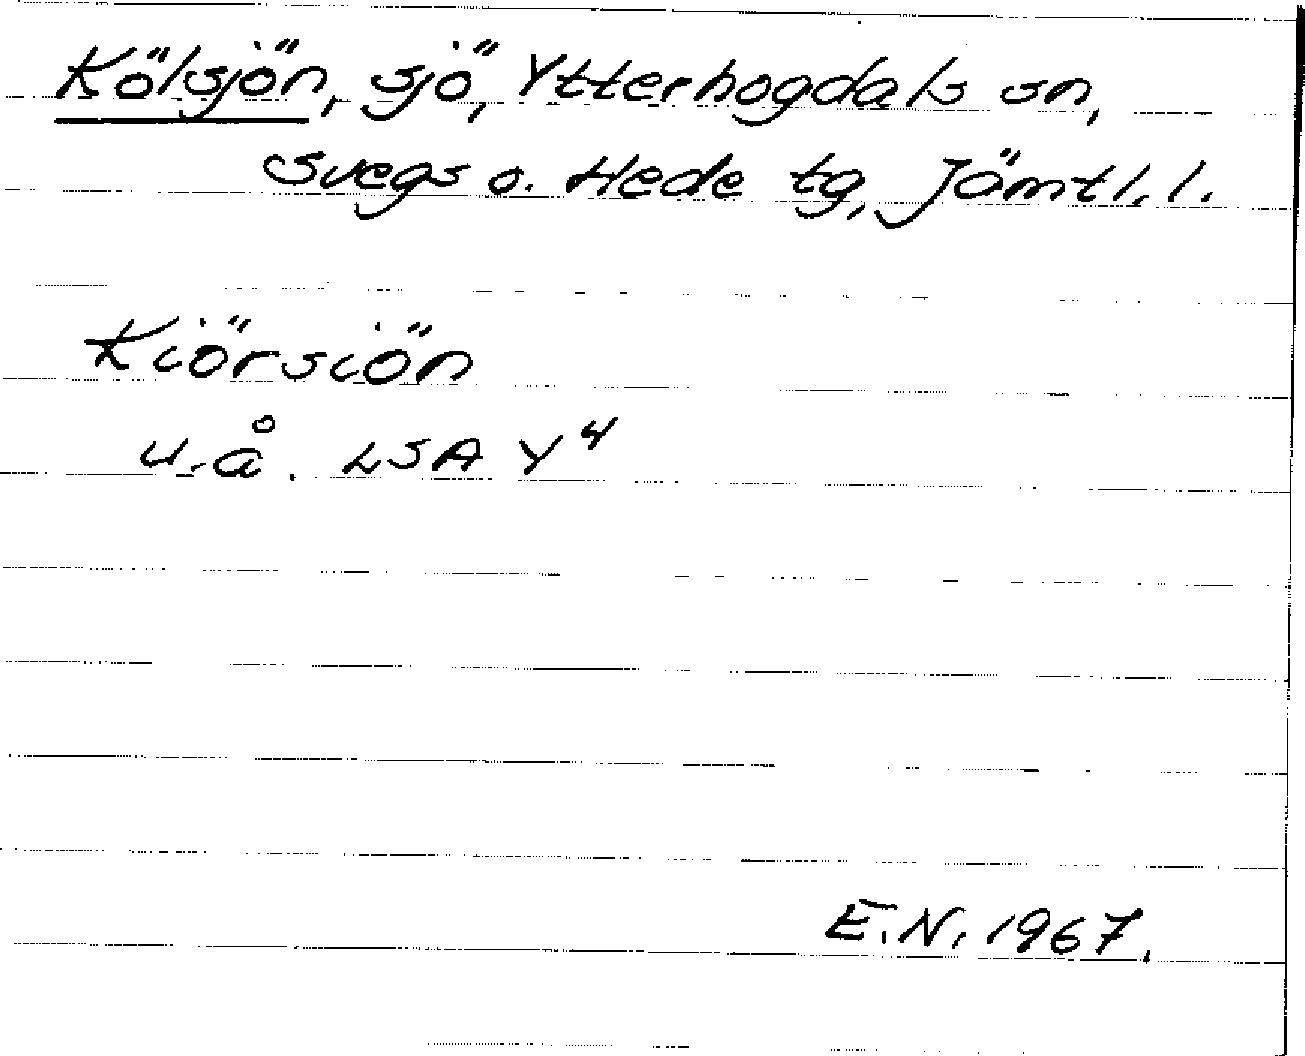 Kölsjön, sjö, Ytterhogdals sn,
Svegs o. Hede tg, Jämtl. l.
Kiörsiön
u.å. LSA Y4
E.N. 1967.